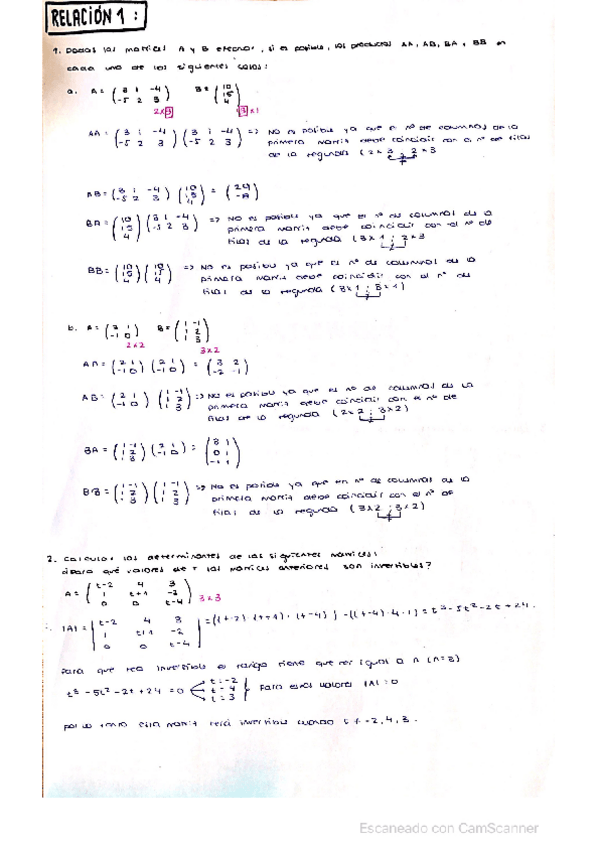 RELACIÓN 1:
1. Dadas las matrices A y B efectuar, si es posible, los productos AA, AB, BA y BB en
cada uno de los siguientes casos:
a. A = (3 1 -4 / -5 2 3) B = (10 / 15 / 4)
2x3 3x1
AA = (3 1 -4 / -5 2 3) (3 1 -4 / -5 2 3) => No es posible ya que el nº de columnas de la
primera matriz debe coincidir con el nº de filas
de la segunda (2x3 , 2x3
AB = (3 1 -4 / -5 2 3) (10 / 15 / 4) =
BA = (10 / 15 / 4) (3 1 -4 / -5 2 3) => No es posible ya que el nº de columnas de la
primera matriz debe coincidir con el nº de
filas de la segunda (3x1 ; 2x3
BB = (10 / 15 / 4) (10 / 15 / 4) => No es posible ya que el nº de columnas de la
primera matriz debe coincidir con el nº de
filas de la segunda (3x1 ; 3x1)
b. A = B = (1 -1 / 1 2 / 1 3)
2x2 3x2
AA = (2 1 / -1 0) (2 1 / -1 0) = (3 2 / -2 -1)
AB = (2 1 / -1 0) (1 -1 / 1 2 / 1 3) => No es posible ya que el nº de columnas de la
primera matriz debe coincidir con el nº de
filas de la segunda (2x2 ; 3x2)
BA = (1 -1 / 1 2 / 1 3) (2 1 / -1 0) = (3 1 / 0 1 / -1 1)
BB = (1 -1 / 1 2 / 1 3) (1 -1 / 1 2 / 1 3) => No es posible ya que nº de columnas de la
primera matriz debe coincidir con el nº de
filas de la segunda (3x2 ; 3x2)
2. Calcular los determinantes de las siguientes matrices:
¿Para qué valores de t las matrices anteriores son invertibles?
A = (t-2 4 3 / 1 t+1 -2 / 0 0 t-4) 3x3
|A| = |t-2 4 3 / 1 t+1 -2 / 0 0 t-4| = ((t-2)·(t+1)·(t-4)) - ((t-4)·4·1) = t³-5t²-2t+24.
Para que sea invertible el rango tiene que ser igual a n (n=3)
t³-5t²-2t+24=0 t=-2 t=4 t=3 Para esos valores |A|=0
por lo tanto esta matriz será invertible cuando t ≠ -2,4,3.
Escaneado con CamScanner